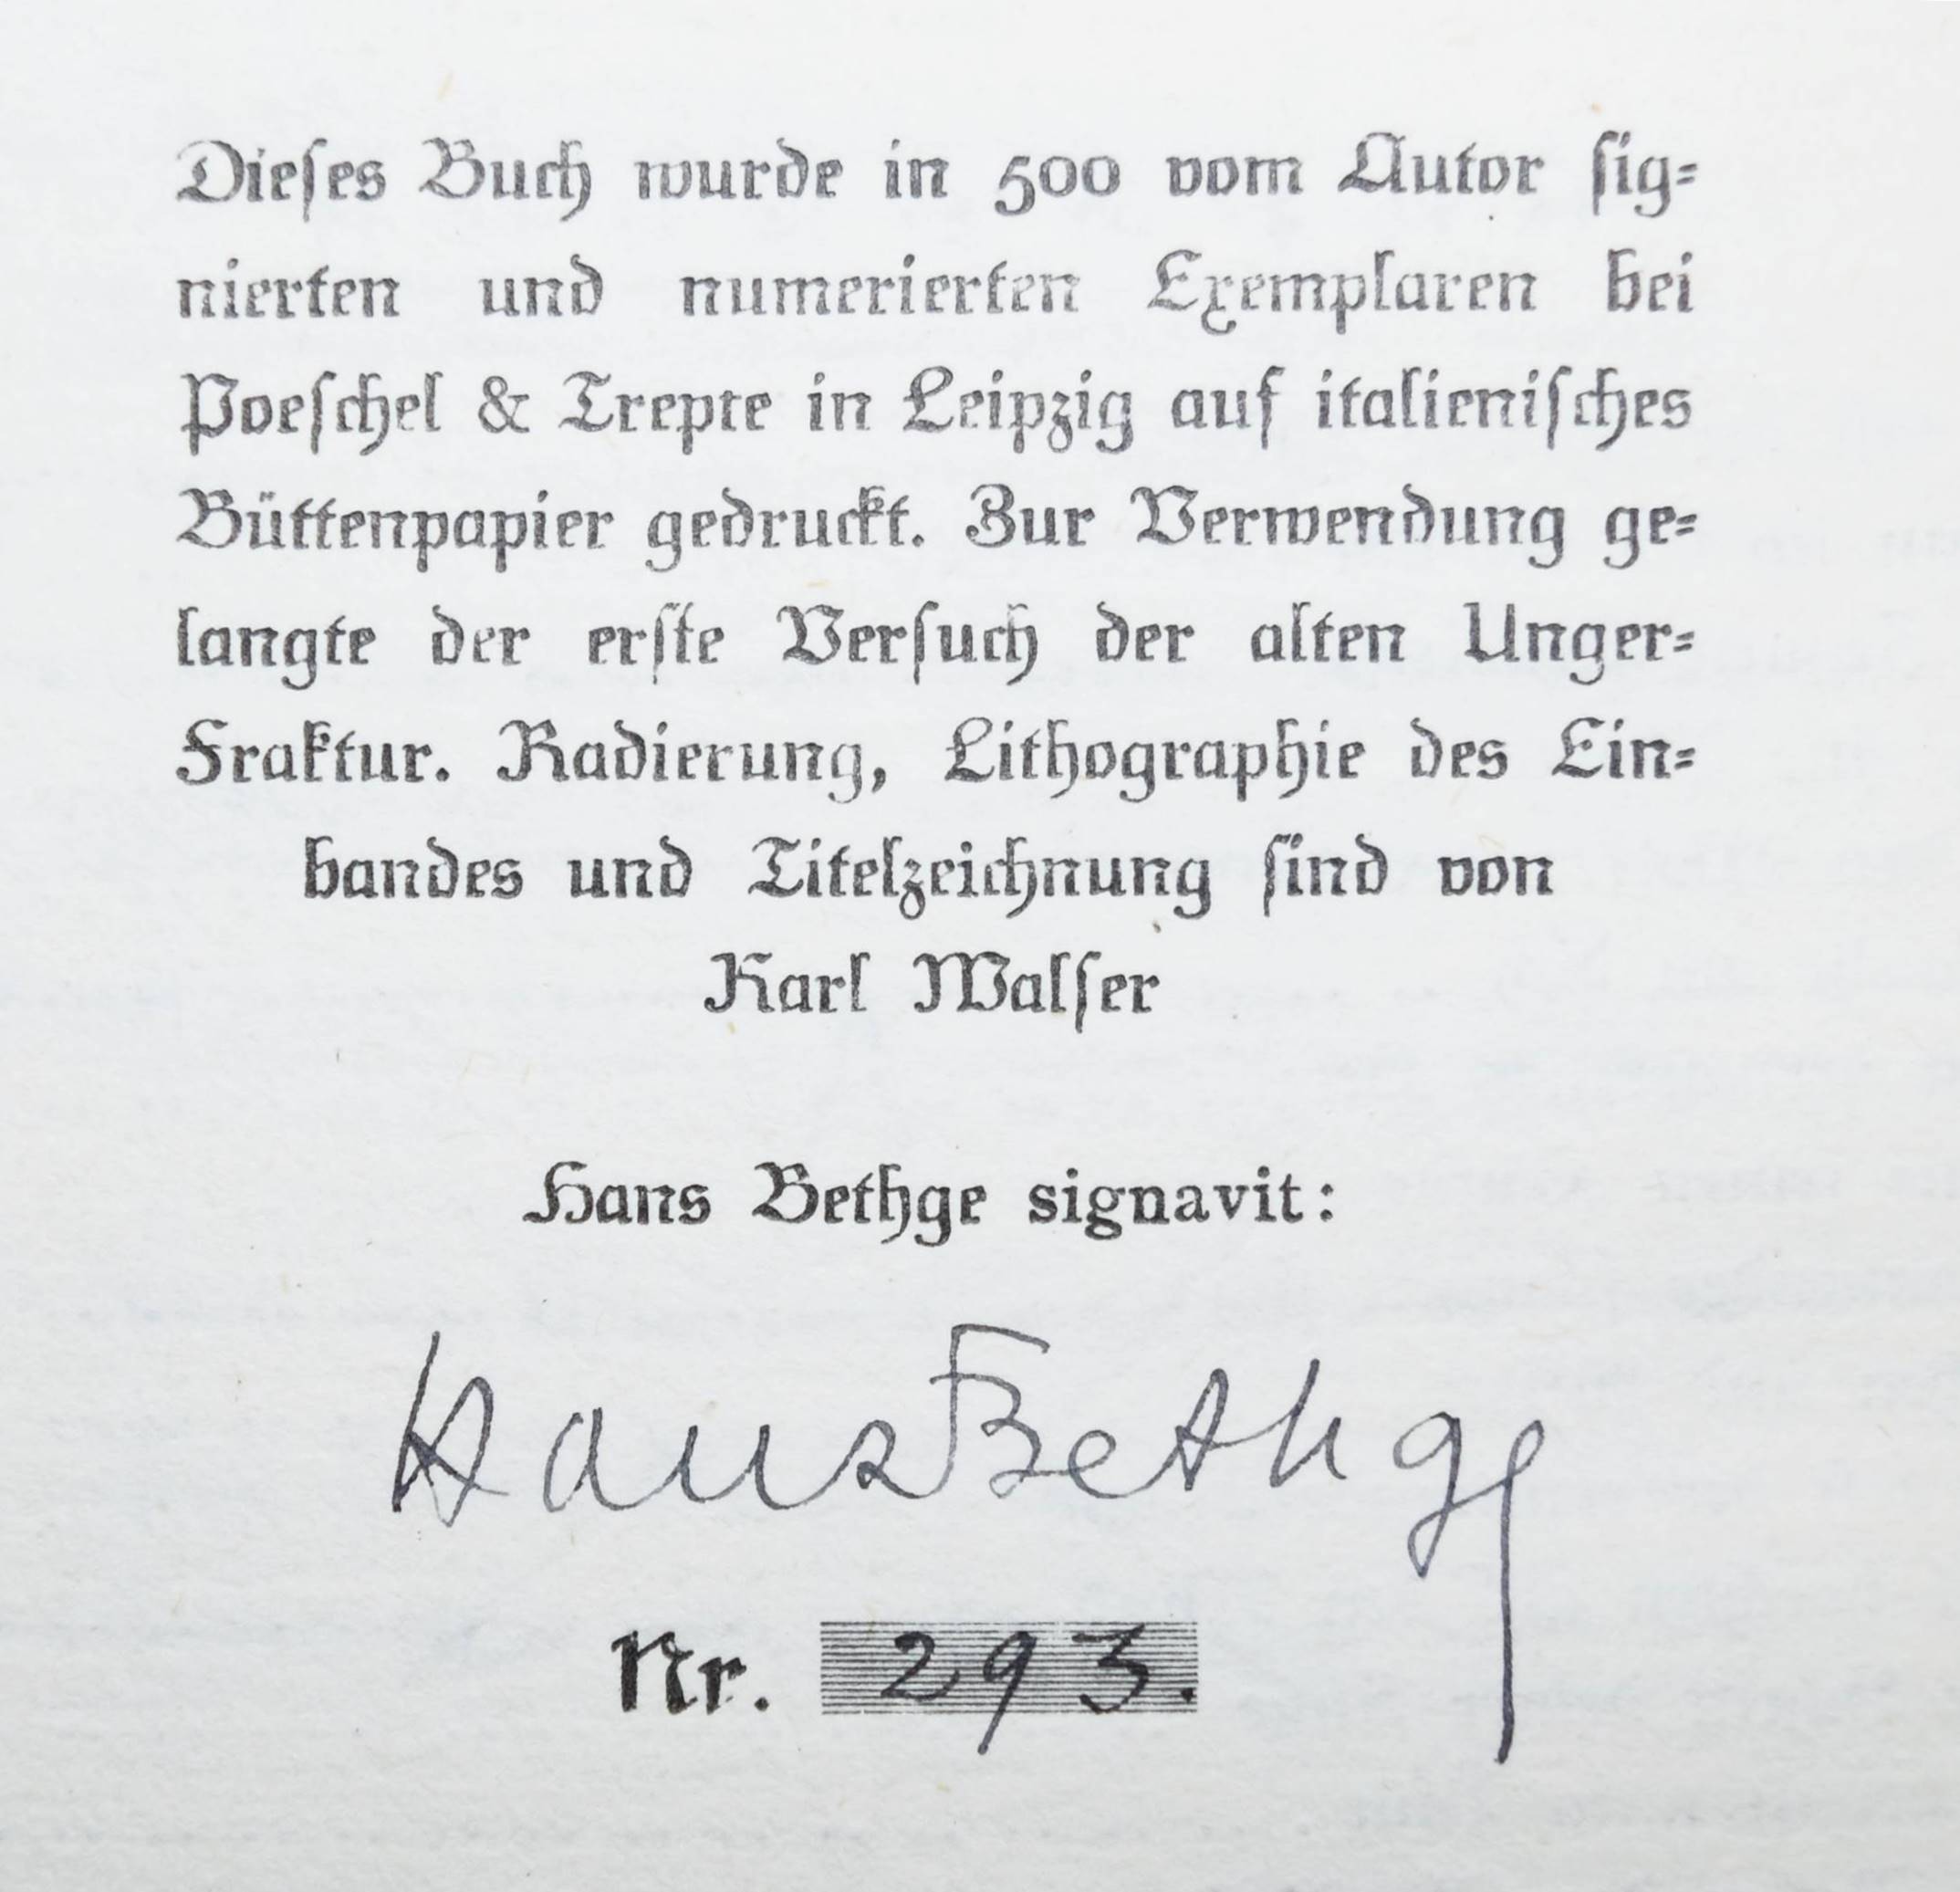 Dieſes Buch wurde in 500 vom Autor ſig=
nierten und numerierten Exemplaren bei
Poeſchel & Trepte in Leipzig auf italieniſches
Büttenpapier gedruckt. Zur Verwendung ge=
langte der erſte Verſuch der alten Unger=
Fraktur. Radierung, Lithographie des Ein=
bandes und Titelzeichnung ſind von
Karl Walſer
Hans Bethge signavit:
Hans Bethge
Nr. 293.